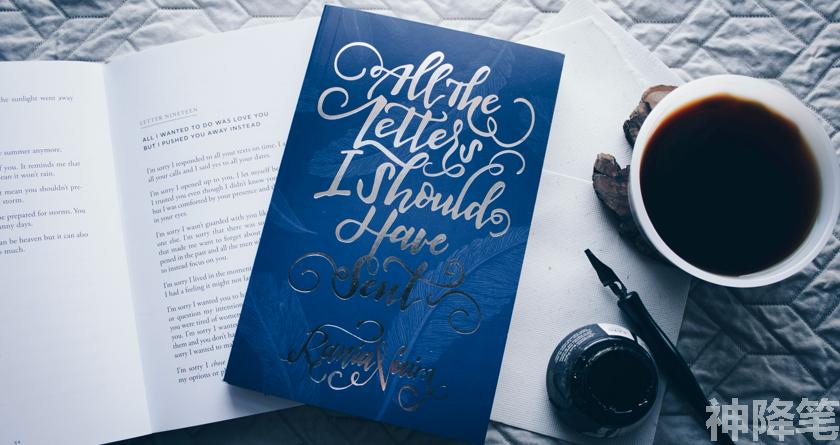 the sunlight went away
summer anymore.
f you. It reminds me that
ean it won't rain.
t mean you shouldn't pre-
torm.
be prepared for storms. You
nny days.
an be heaven but it can also
s much.
64
LETTER NINETEEN
ALL I WANTED TO DO WAS LOVE YOU
BUT I PUSHED YOU AWAY INSTEAD
I'm sorry I responded to all your texts on time. I
all your calls and I said yes to all your dates.
I'm sorry I opened up to you, I let myself be
I trusted you even though I didn't know you
but I was comforted by your presence and th
in your eyes.
I'm sorry I wasn't guarded with you like
one else. I'm sorry that there was so
that made me want to forget about
pened in the past and all the men w
to instead focus on you.
I'm sorry I lived in the moment
I had a feeling it might not la
I'm sorry I wanted you to b
or question my intention
you were tired of women
them and you don't ha
sorry I wanted to ma
I'm sorry I chose
my options or p
All the
Letters
I Should
Have
Sent
Rania Naim
神降笔